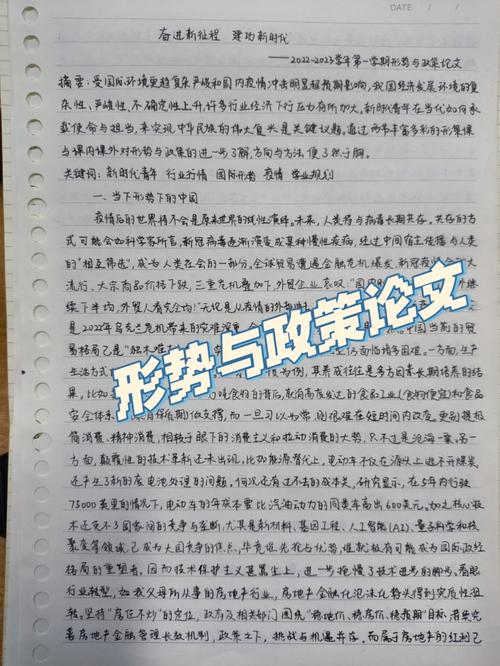 DATE
奋进新征程 建功新时代
——2022-2023学年第一学期形势与政策论文
摘要:受国际环境更趋复杂严峻和国内疫情冲击明显超预期影响,我国经济发展环境的复
杂性、严峻性、不确定性上升,许多行业经济下行压力有所加大。新时代青年在当代如何承
载使命与担当,来实现中华民族的伟大复兴是关键议题。通过两节丰富多彩的形策课
与课内课外对形势与政策的进一步了解,方向与方法,便了然于胸。
关键词:新时代青年 行业行情 国际形势 疫情 学业规划
一、当下形势下的中国
疫情后的世界将不会是原来世界的线性演绎。未来,人类将与病毒长期共存。共存的方
式可能会如科学家所言,新冠病毒逐渐演变成某种慢性疾病,经过中间宿主传播与人类
的"相互筛选",成为人类社会的一部分。全球贸易遭遇金融危机爆发、新冠疫
流行、大宗商品价格下跌,三重危机叠加下,外贸企业哀叹:
续下半年,外贸人看完会内!"无论是从疫情的外部
是2022年乌克兰危机带来的灾难深重
中国当前的贸
易格局已是"独木难
生活方式 为例,其养成往往是多方因素长期培养的结
果,比如 吃食物的背后,
安全体系 做支撑,而一旦习以为常,则很难在短时间内改变。更别提极
简消费、精神消费,相较于眼下的消费主义和拉动消费的大势,只不过是沧海一粟。另一
方面,颠覆性的技术革新还未出现,比如能源替代上,电动车不仅在源头上逃不开煤炭,
还产生了新的废电池处理的问题。何况还有过不去的成本关,研究显示,在5年内行驶
75000英里的情况下,电动车的年成本要比汽油动力的同类车高出600美元。加之核心技
术还免不了国家间的竞争与垄断,尤其是新材料、基因工程、人工智能(AI)、量子科学和核
聚变等领域,已成为大国竞争的焦点,毕竟谁先抢占优势,谁就极有可能成为国际政经
格局的重塑者,因而技术保护主义甚嚣尘上,进一步拖慢了技术进步的脚步。着眼
行业转型,如我父母所从事的房地产行业,房地产金融化泡沫化势头得到实质性扭
转。坚持"房住不炒"的定位,政府及相关部门围绕"稳地价、稳房价、稳预期"目标,落实完
善房地产金融管理长效机制,政策之下,挑战与机遇并存。而属于房地产的红利已
形势与政策论文